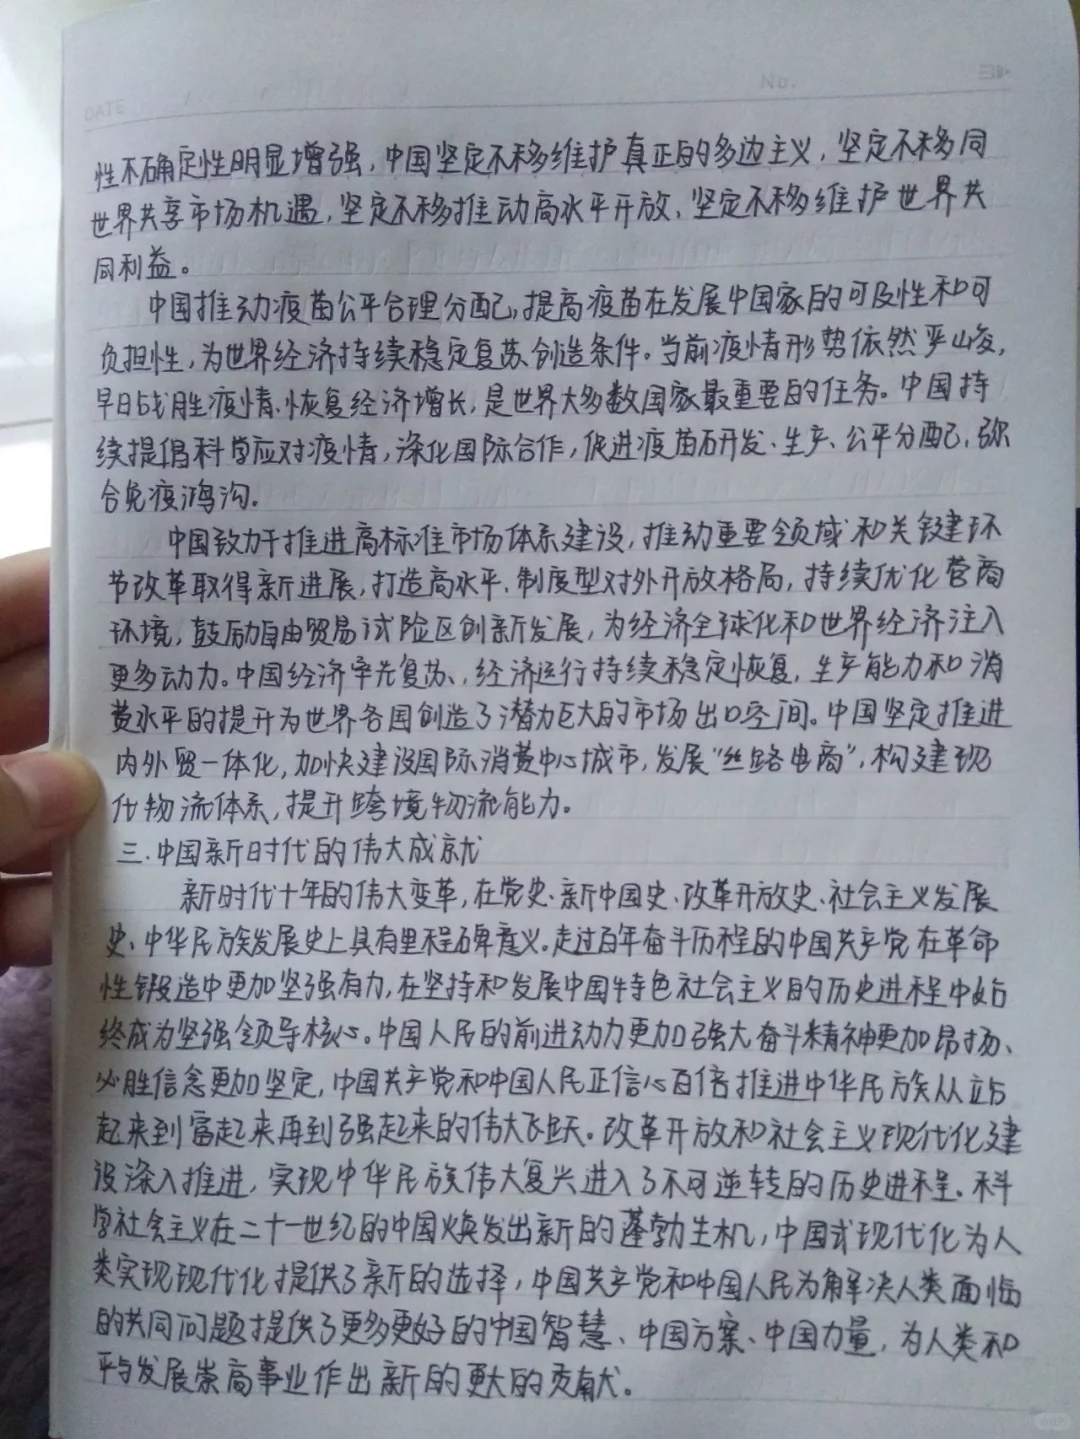 DATE
No.
性不确定性明显增强，中国坚定不移维护真正的多边主义，坚定不移同
世界共享市场机遇，坚定不移推动高水平开放、坚定不移维护世界共
同利益。
中国推动疫苗公平合理分配，提高疫苗在发展中国家的可及性和可
负担性，为世界经济持续稳定复苏创造条件。当前疫情形势依然严峻，
早日战胜疫情、恢复经济增长，是世界大多数国家最重要的任务。中国持
续提倡科学应对疫情，深化国际合作，促进疫苗研发、生产、公平分配，弥
合免疫鸿沟。
中国致力于推进高标准市场体系建设，推动重要领域和关键环
节改革取得新进展，打造高水平、制度型对外开放格局，持续优化营商
环境，鼓励自由贸易试险区创新发展，为经济全球化和世界经济注入
更多动力。中国经济率先复苏、，经济运行持续稳定恢复，生产能力和消
费水平的提升为世界各国创造了潜力巨大的市场出口空间。中国坚定推进
内外贸一体化，加快建设国际消费中心城市，发展“丝路电商”，构建现
代物流体系，提升跨境物流能力。
三.中国新时代的伟大成就
新时代十年的伟大变革，在党史、新中国史、改革开放史、社会主义发展
史、中华民族发展史上具有里程碑意义。走过百年奋斗历程的中国共产党在革命
性锻造中更加坚强有力，在坚持和发展中国特色社会主义的历史进程中始
终成为坚强领导核心。中国人民的前进动力更加强大奋斗精神更加昂扬、
必胜信念更加坚定，中国共产党和中国人民正信心百倍推进中华民族从站
起来到富起来再到强起来的伟大飞跃。改革开放和社会主义现代化建
设深入推进，实现中华民族伟大复兴进入了不可逆转的历史进程。科
学社会主义在二十一世纪的中国焕发出新的蓬勃生机，中国式现代化为人
类实现现代化提供了新的选择，中国共产党和中国人民为解决人类面临
的共同问题提供了更多更好的中国智慧、中国方案、中国力量，为人类和
平与发展崇高事业作出新的更大的贡献。